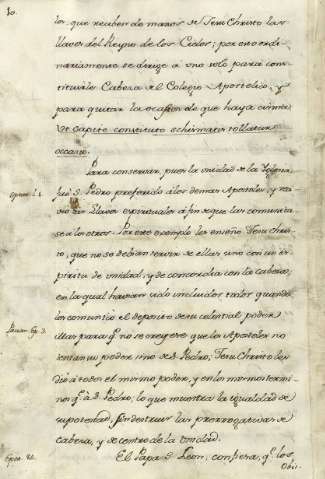 10.
los, que reciben de manos de Jesu Christo las
llaves del Reyno de los Cielos; por eso ordi-
nariamente se dirige a uno solo para cons-
tituirle Cabeza del Colegio Apostolico, y
para quitar la ocasion de que haya cisma
Ut Capite constituto schismatis tollatur
occasio.
Para conservar, pues la vnidad de la Yglesia,
fue S. Pedro preferido á los demas Apostoles, y re-
llaves espirituales á fin de que las comunica
se a los otros. Por este exemplo les enseño Jesu Chris-
to, que no se debian servir de ellas sino con un es-
piritu de vnidad, y de concordia con la cabeza,
en la qual havian sido incluidos todos quando
les comunicó el deposito de su celestial poder.
Mas para q.e no se creyese que los Apostoles no
tenian su poder sino de S. Pedro, Jesu Christo les
dió á todos el mismo poder, y en los mismos termi-
nos q.e á S. Pedro, lo que muestra la igualdad de
su potestad, sin destruir las prerrogativas de
cabeza, y de centro de la vnidad.
El Papa S. Leon, confiesa, q.e los
Obis-